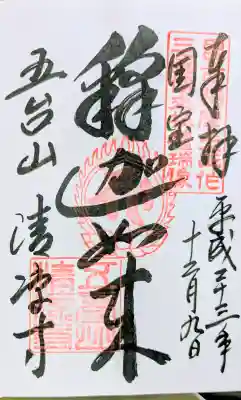 奉拝
平成二十三年
十二月九日
国宝
釋迦如来
五台山
清凉寺